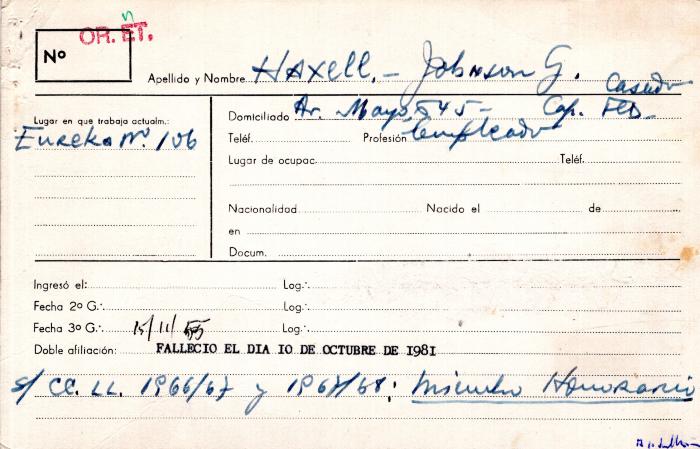 OR. ET.
n
Nº
Apellido y Nombre HAxell.- Johnson G. Casado
Lugar en que trabaja actualm.:
Eureka Nº. 106
Domiciliado Av. Mayo 845- Cap. FED.
Teléf. Profesión Empleado
Lugar de ocupac. Teléf.
Nacionalidad Nacido el de
en
Docum.
Ingresó el: Log∴
Fecha 2º G∴ Log∴
Fecha 3º G∴ 15/11/55 Log∴
Doble afiliación: FALLECIO EL DIA 10 DE OCTUBRE DE 1981
s/ CC. LL. 1966/67 y 1967/68: Miembro Honorario